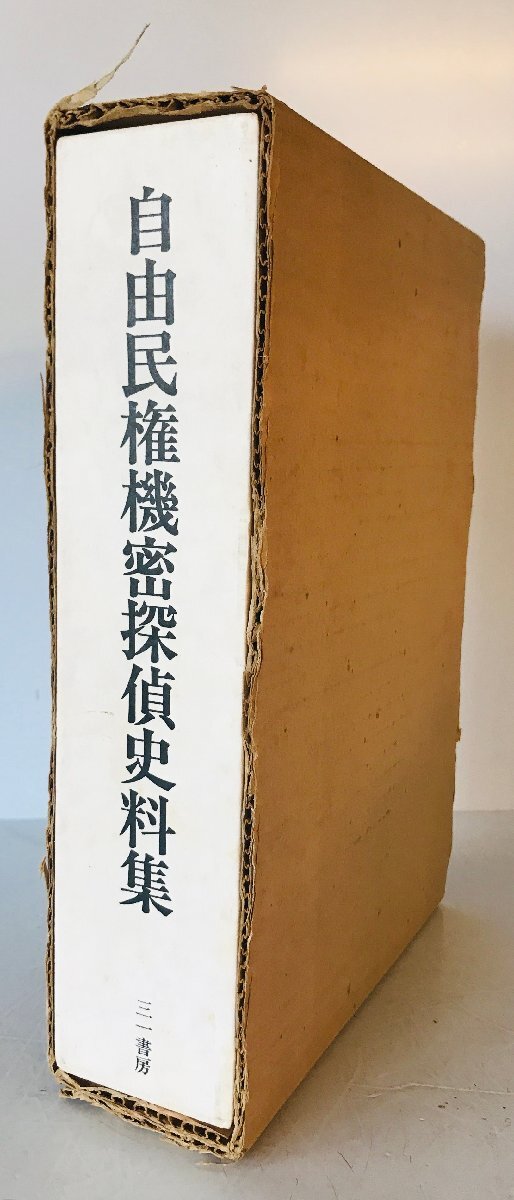 自由民権機密探偵史料集
三一書房